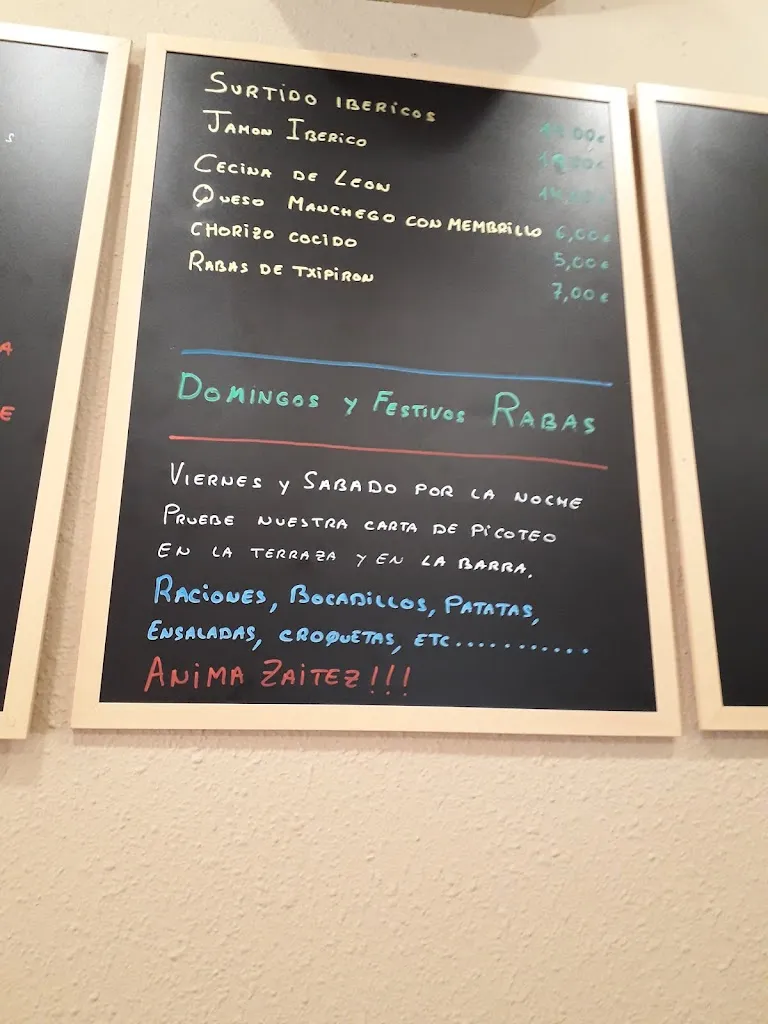 SURTIDO IBERICOS
JAMON IBERICO
CECINA DE LEON
QUESO MANCHEGO CON MEMBRILLO 6,00€
CHORIZO COCIDO 5,00€
RABAS DE TXIPIRON 7,00€
DOMINGOS Y FESTIVOS RABAS
VIERNES Y SABADO POR LA NOCHE
PRUEBE NUESTRA CARTA DE PICOTEO
EN LA TERRAZA Y EN LA BARRA.
RACIONES, BOCADILLOS, PATATAS,
ENSALADAS, CROQUETAS, ETC............
ANIMA ZAITEZ!!!